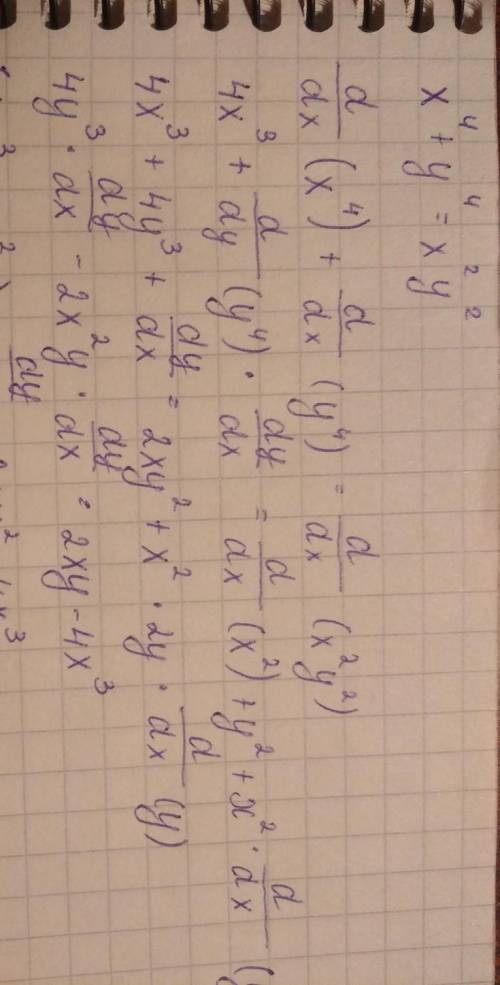 x⁴ + y⁴ = x² y²
d/dx (x⁴) + d/dx (y⁴) = d/dx (x² y²)
4x³ + d/dy (y⁴) · dy/dx = d/dx (x²) + y² + x² · d/dx (
4x³ + 4y³ + dy/dx = 2xy² + x² · 2y · d/dx (y)
4y³ · dy/dx - 2x²y · dy/dx = 2xy - 4x³
dy